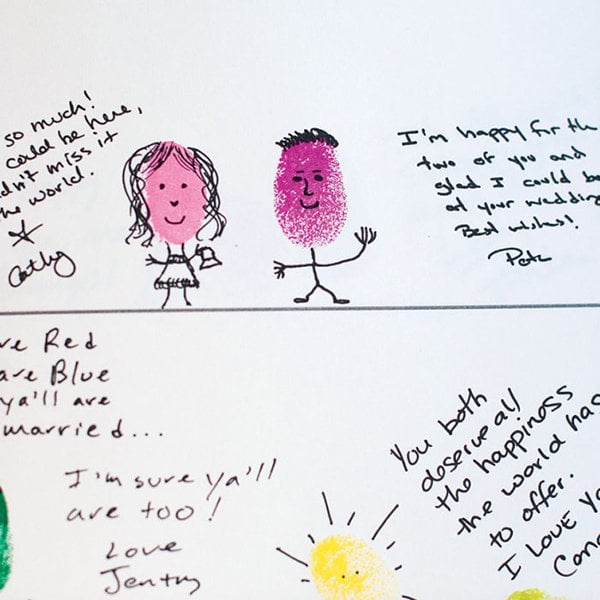 so much!
could be here,
dn't miss it
the world.
Cathy
I'm happy for th
two of you and
glad I could be
at your wedding
Best wishes!
Pete
ve Red
are Blue
ya'll are
married...
I'm sure ya'll
are too!
Love
Jentry
You both
deserve all
the happiness
the world has
to offer.
I LOVE Yo
Con